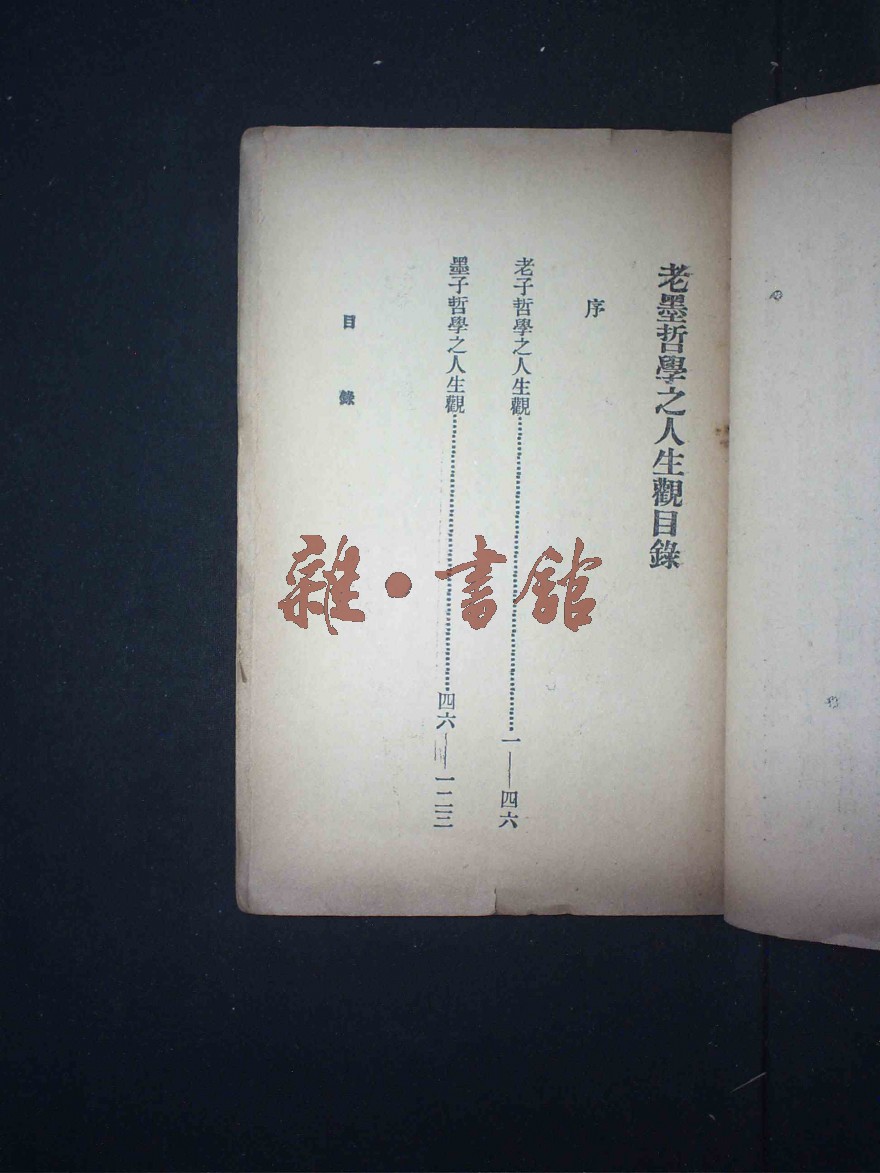 老墨哲學之人生觀目錄
序
老子哲學之人生觀……一——四六
墨子哲學之人生觀……四六——一二三
目錄
雜・書館